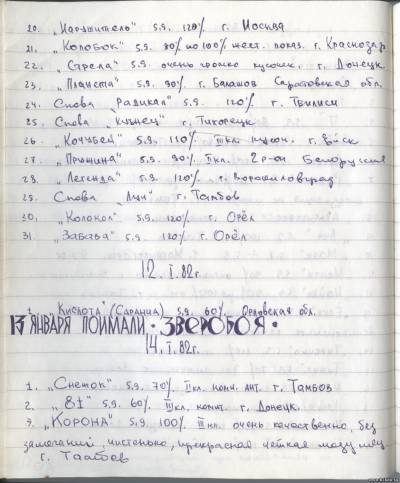 20. „Нарушитель" 5.9. 120% г. Москва
21. „Колобок" 5.9. 80% по 100% жест. показ. г. Краснодар
22. „Стрела" 5.9. очень громко кусочек. г. Донецк
23. „Планета" 5.9. 90% г. Балашов Саратовская обл.
24. Снова „Радикал" 5.9. 120% г. Тбилиси
25. Снова „Кузнец" г. Тихорецк
26. „Кочубей" 5.9. 110% III кл. г.
27. „Пружина" 5.9. 90% II кл. 2 р-он Белоруссия
28. „Легенда" 5.9. 120% г. Ворошиловград
29. Снова „Луч" г. Тамбов
30. „Колокол" 5.9. 120% г. Орёл
31. „Забава" 5.9. 120% г. Орёл
12. I. 82г.
1. „Кислота" (Саранча) 5.9. 60% Орловская обл.
13 ЯНВАРЯ ПОЙМАЛИ • ЗВЕРОБОЯ •
14. I. 82г.
1. „Снеток" 5.9. 70% II кл. комн. ант. г. Тамбов
2. „81" 5.9. 60% III кл. комнт. г. Донецк.
3. „КОРОНА" 5.9. 100% III кл. очень качественно, без
замечаний, чистенько, прекрасная чёткая
г. Тамбов